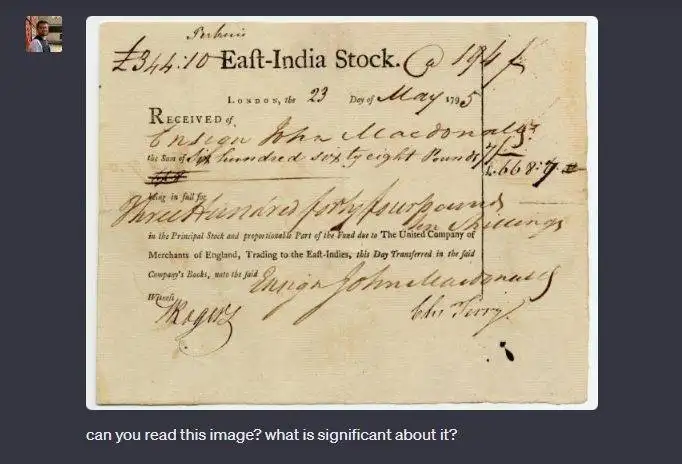 £344:10 East-India Stock. @ 194
LONDON, the 23 Day of May 1795
RECEIVED of
Ensign John Macdonald
the Sum of Six hundred sixty eight Pounds 7/
£.668:7
being in full for
Three Hundred forty four pounds
Ten Shillings
in the Principal Stock and proportionable Part of the Fund due to The United Company of
Merchants of England, Trading to the East-Indies, this Day Transferred in the said
Company's Books, unto the said Ensign John Macdonald
Witness
Rogers
Terry
can you read this image? what is significant about it?